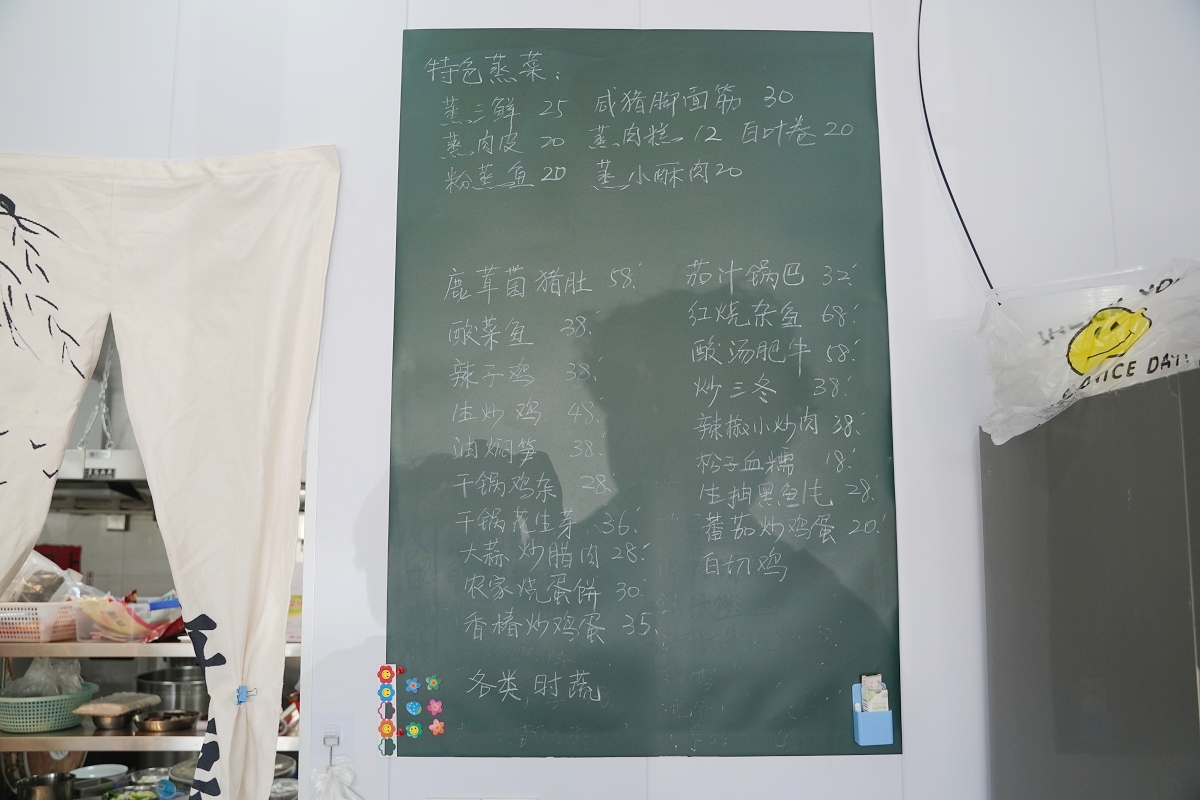 特色蒸菜：
蒸三鲜 25 咸猪脚面筋 30
蒸肉皮 20 蒸肉糕 12 百叶卷 20
粉蒸鱼 20 蒸小酥肉 20
鹿茸菌猪肚 58
酸菜鱼 38
辣子鸡 38
生炒鸡 48
油焖笋 38
干锅鸡杂 28
干锅花生芽 36
大蒜炒腊肉 28
农家烧蛋饼 30
香椿炒鸡蛋 35
各类时蔬
茄汁锅巴 32
红烧杂鱼 68
酸汤肥牛 58
炒三冬 38
辣椒小炒肉 38
松子血糯 18
生抽黑鱼片 28
蕃茄炒鸡蛋 20
白切鸡
NICE DAY!